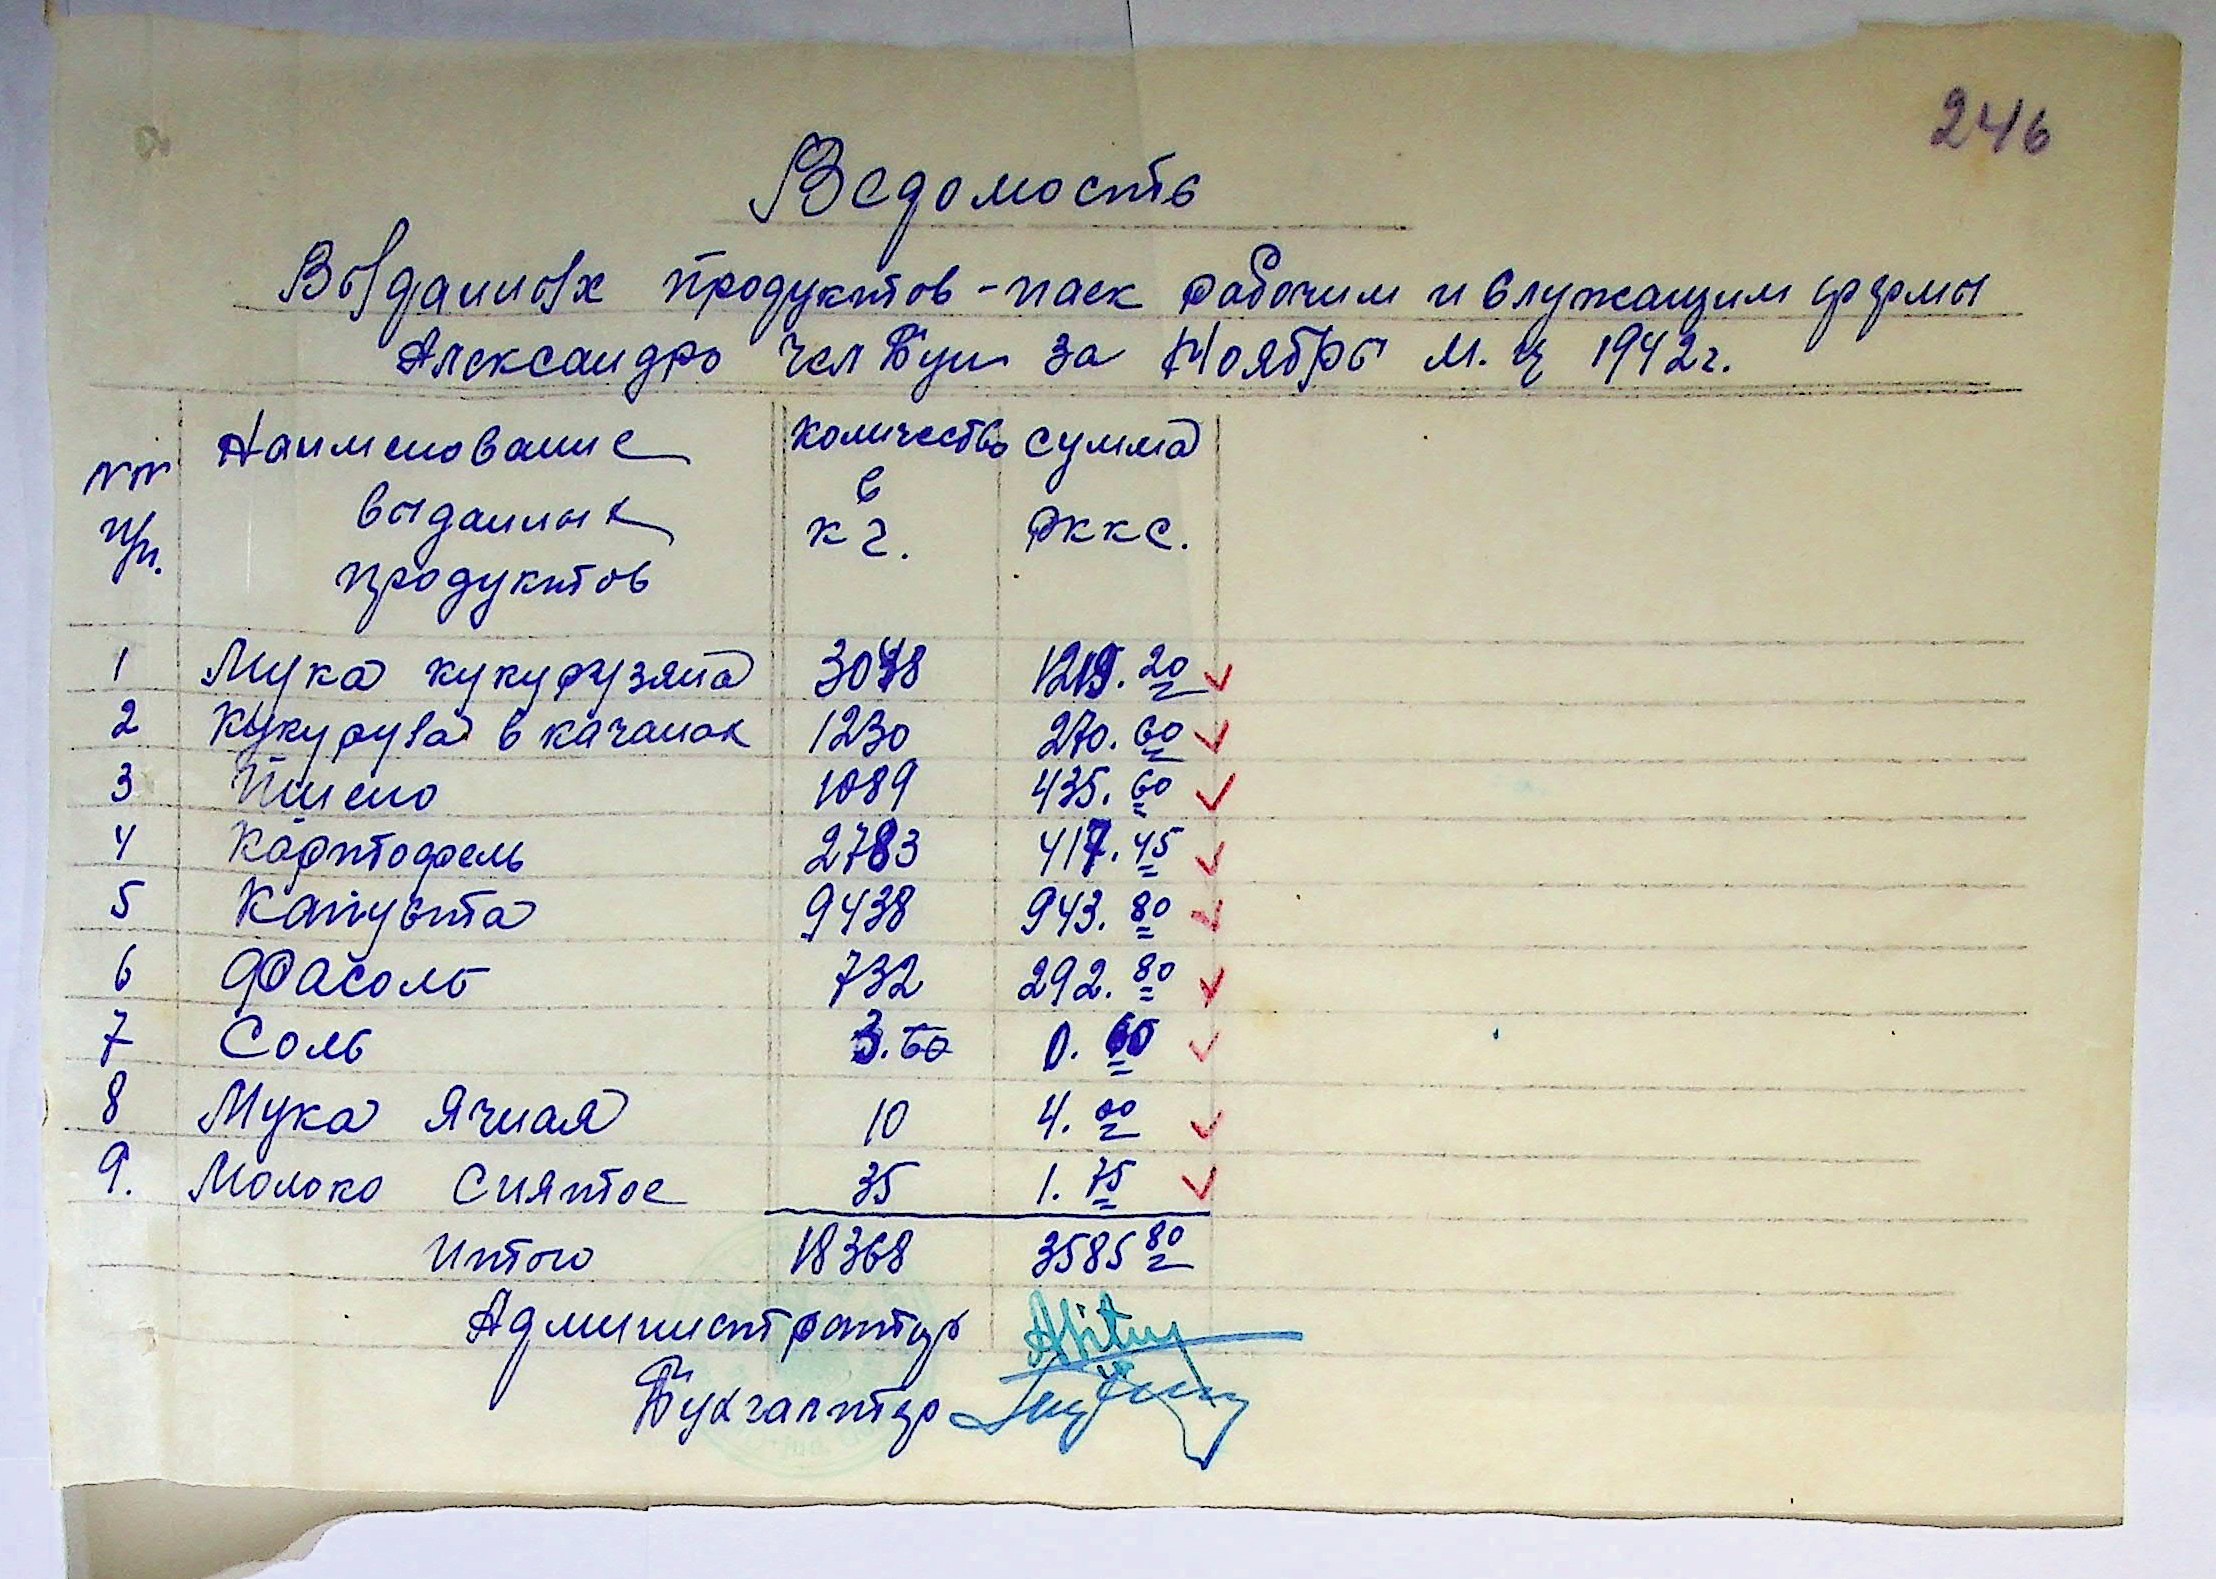 246
Ведомость
Выданных продуктов - паек рабочим и служащим фермы
Александро чел Буш за Ноябрь м. ц 1942 г.
NN п/п. Наименование выданных продуктов Количество в кг. Сумма РККС.
1 Мука кукурузяна 3048 1219.20
2 Кукуруза в качанах 1230 270.60
3 Пшено 1089 435.60
4 Картофель 2783 417.45
5 Капуста 9438 943.80
6 Фасоль 732 292.80
7 Соль 3.60 0.60
8 Мука Ячная 10 4.00
9. Молоко Снятое 35 1.75
Итого 18368 3585 80
Администратор
Бухгалтер